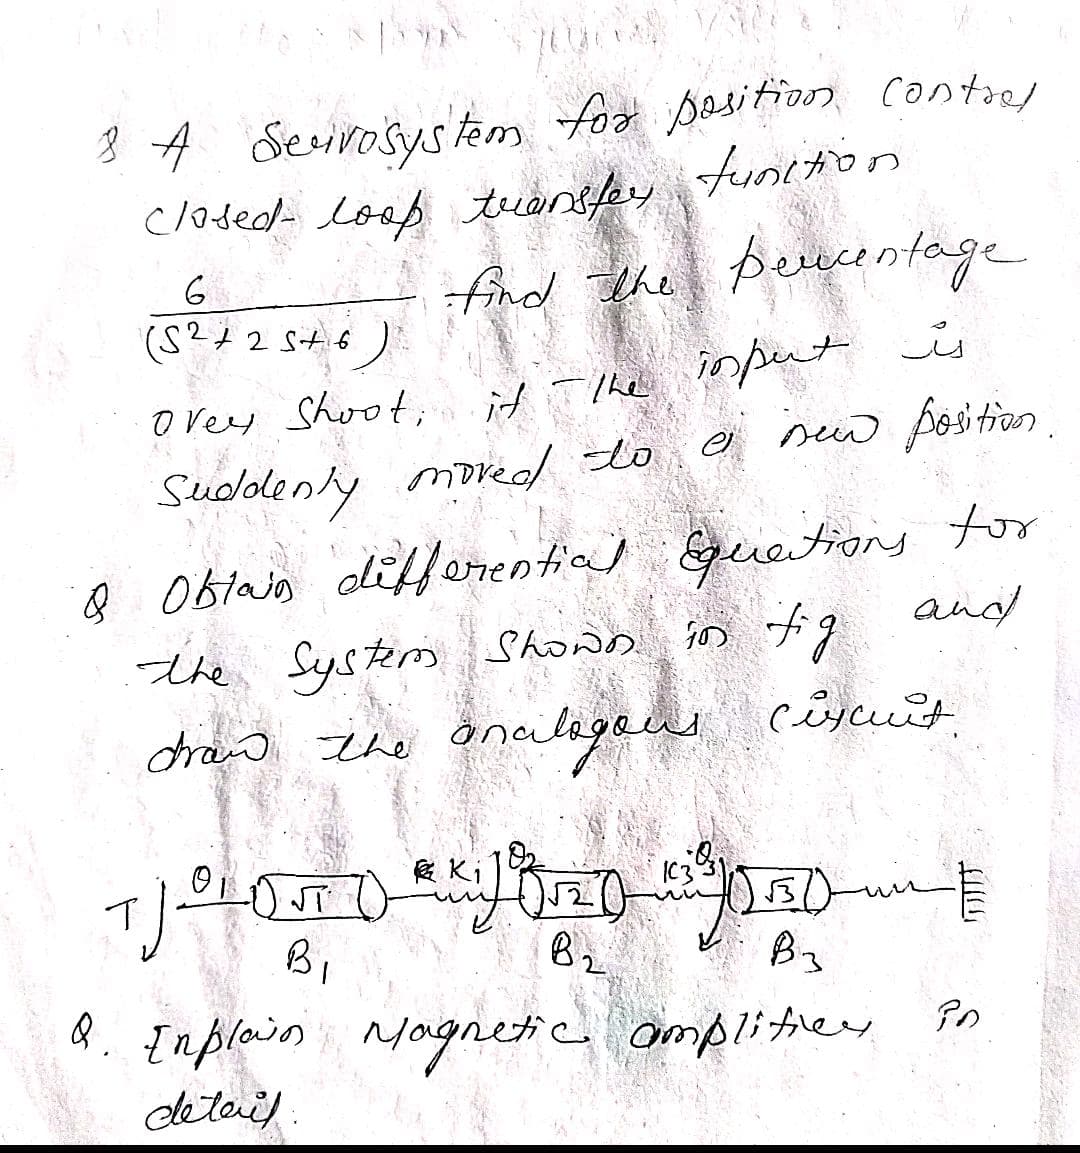 Q A Servosystem for position control
closed-loop transfer function
6
(S2+2S+6)
find the percentage
over shoot, if the input is
Suddenly moved to a new position.
Q Obtain differential Equations for
the System Shown in fig and
draw the analogous circuit.
T θ1 J1 K1 θ2 J2 K3 θ3 J3
B1 B2 B3
Q. Explain Magnetic amplifier in
detail.